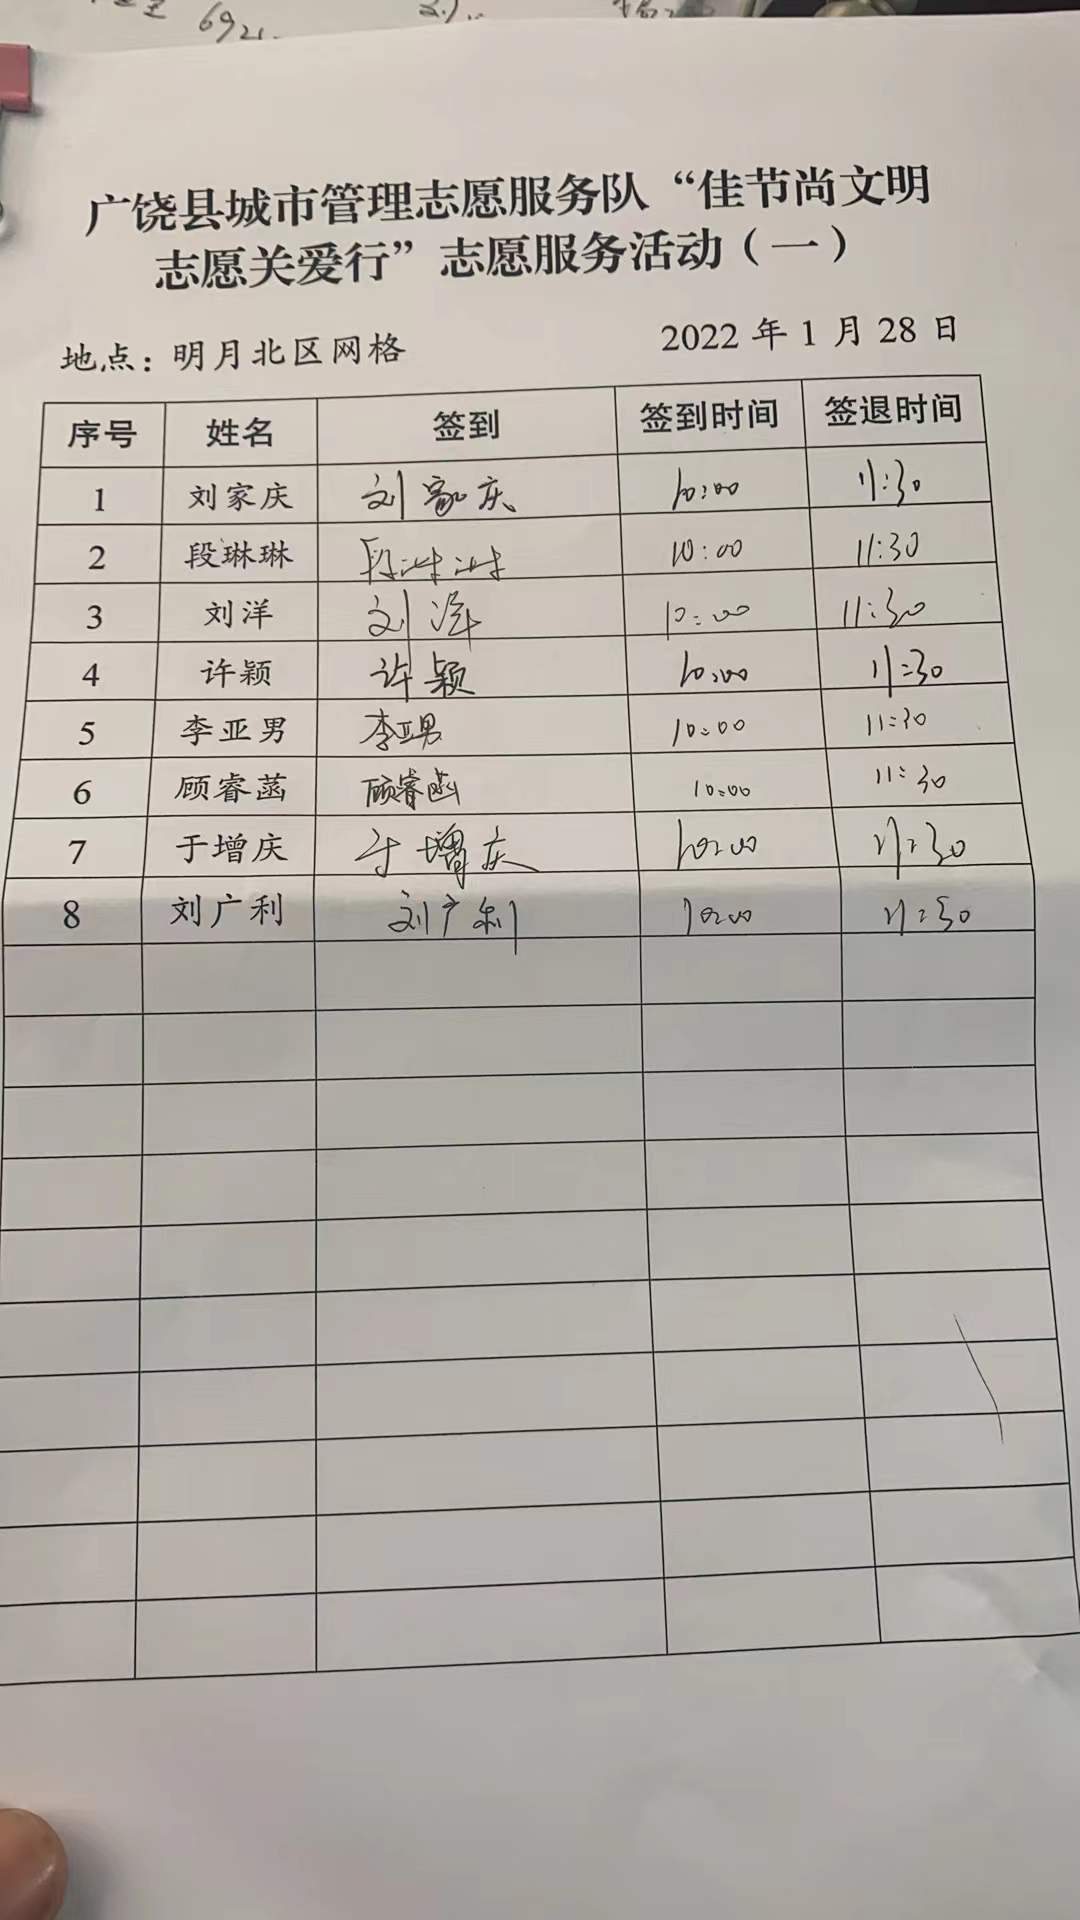 692
广饶县城市管理志愿服务队“佳节尚文明
志愿关爱行”志愿服务活动（一）
地点：明月北区网格 2022 年 1 月 28 日
序号 姓名 签到 签到时间 签退时间
1 刘家庆 刘家庆 10:00 11:30
2 段琳琳 段琳琳 10:00 11:30
3 刘洋 刘洋 10:00 11:30
4 许颖 许颖 10:00 11:30
5 李亚男 李亚男 10:00 11:30
6 顾睿菡 顾睿菡 10:00 11:30
7 于增庆 于增庆 10:00 11:30
8 刘广利 刘广利 10:00 11:30